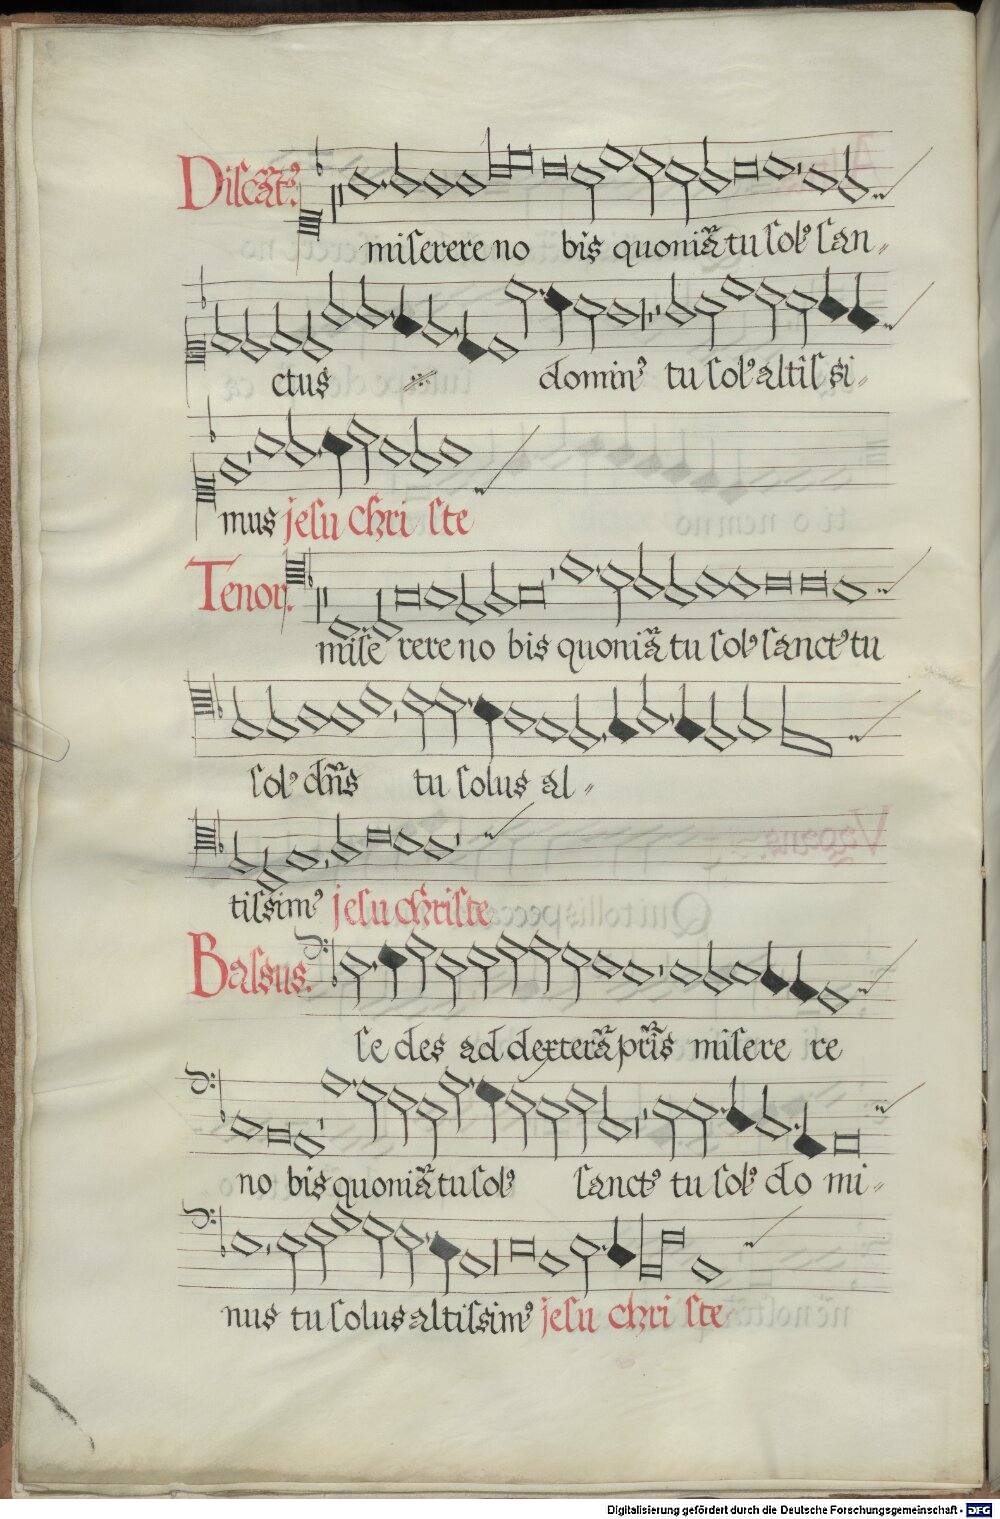 Discātꝰ.
miserere no bis quoniā tu solꝰ san-
ctus dominꝰ tu solꝰ altissi-
mus jesu christe
Tenor.
miserere no bis quoniā tu solꝰ sanctꝰ tu
solꝰ dn̄s tu solus al-
tissimꝰ jesu christe
Bassus.
se des ad dexterā pr̄is miserere
no bis quoniā tu solꝰ sanctꝰ tu solꝰ do mi-
nus tu solus altissimꝰ jesu christe
Digitalisierung gefördert durch die Deutsche Forschungsgemeinschaft - DFG